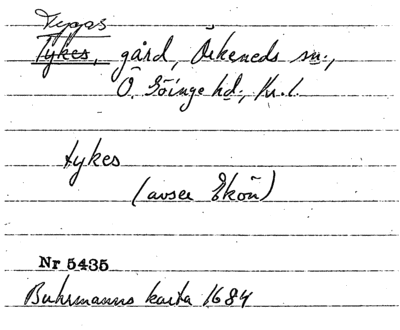 Tykes, gård, Örkeneds sn.,
Ö. Göinge hd., Kr. l.
tykes
(avser Ekön)
Nr 5435
Buhrmanns karta 1684